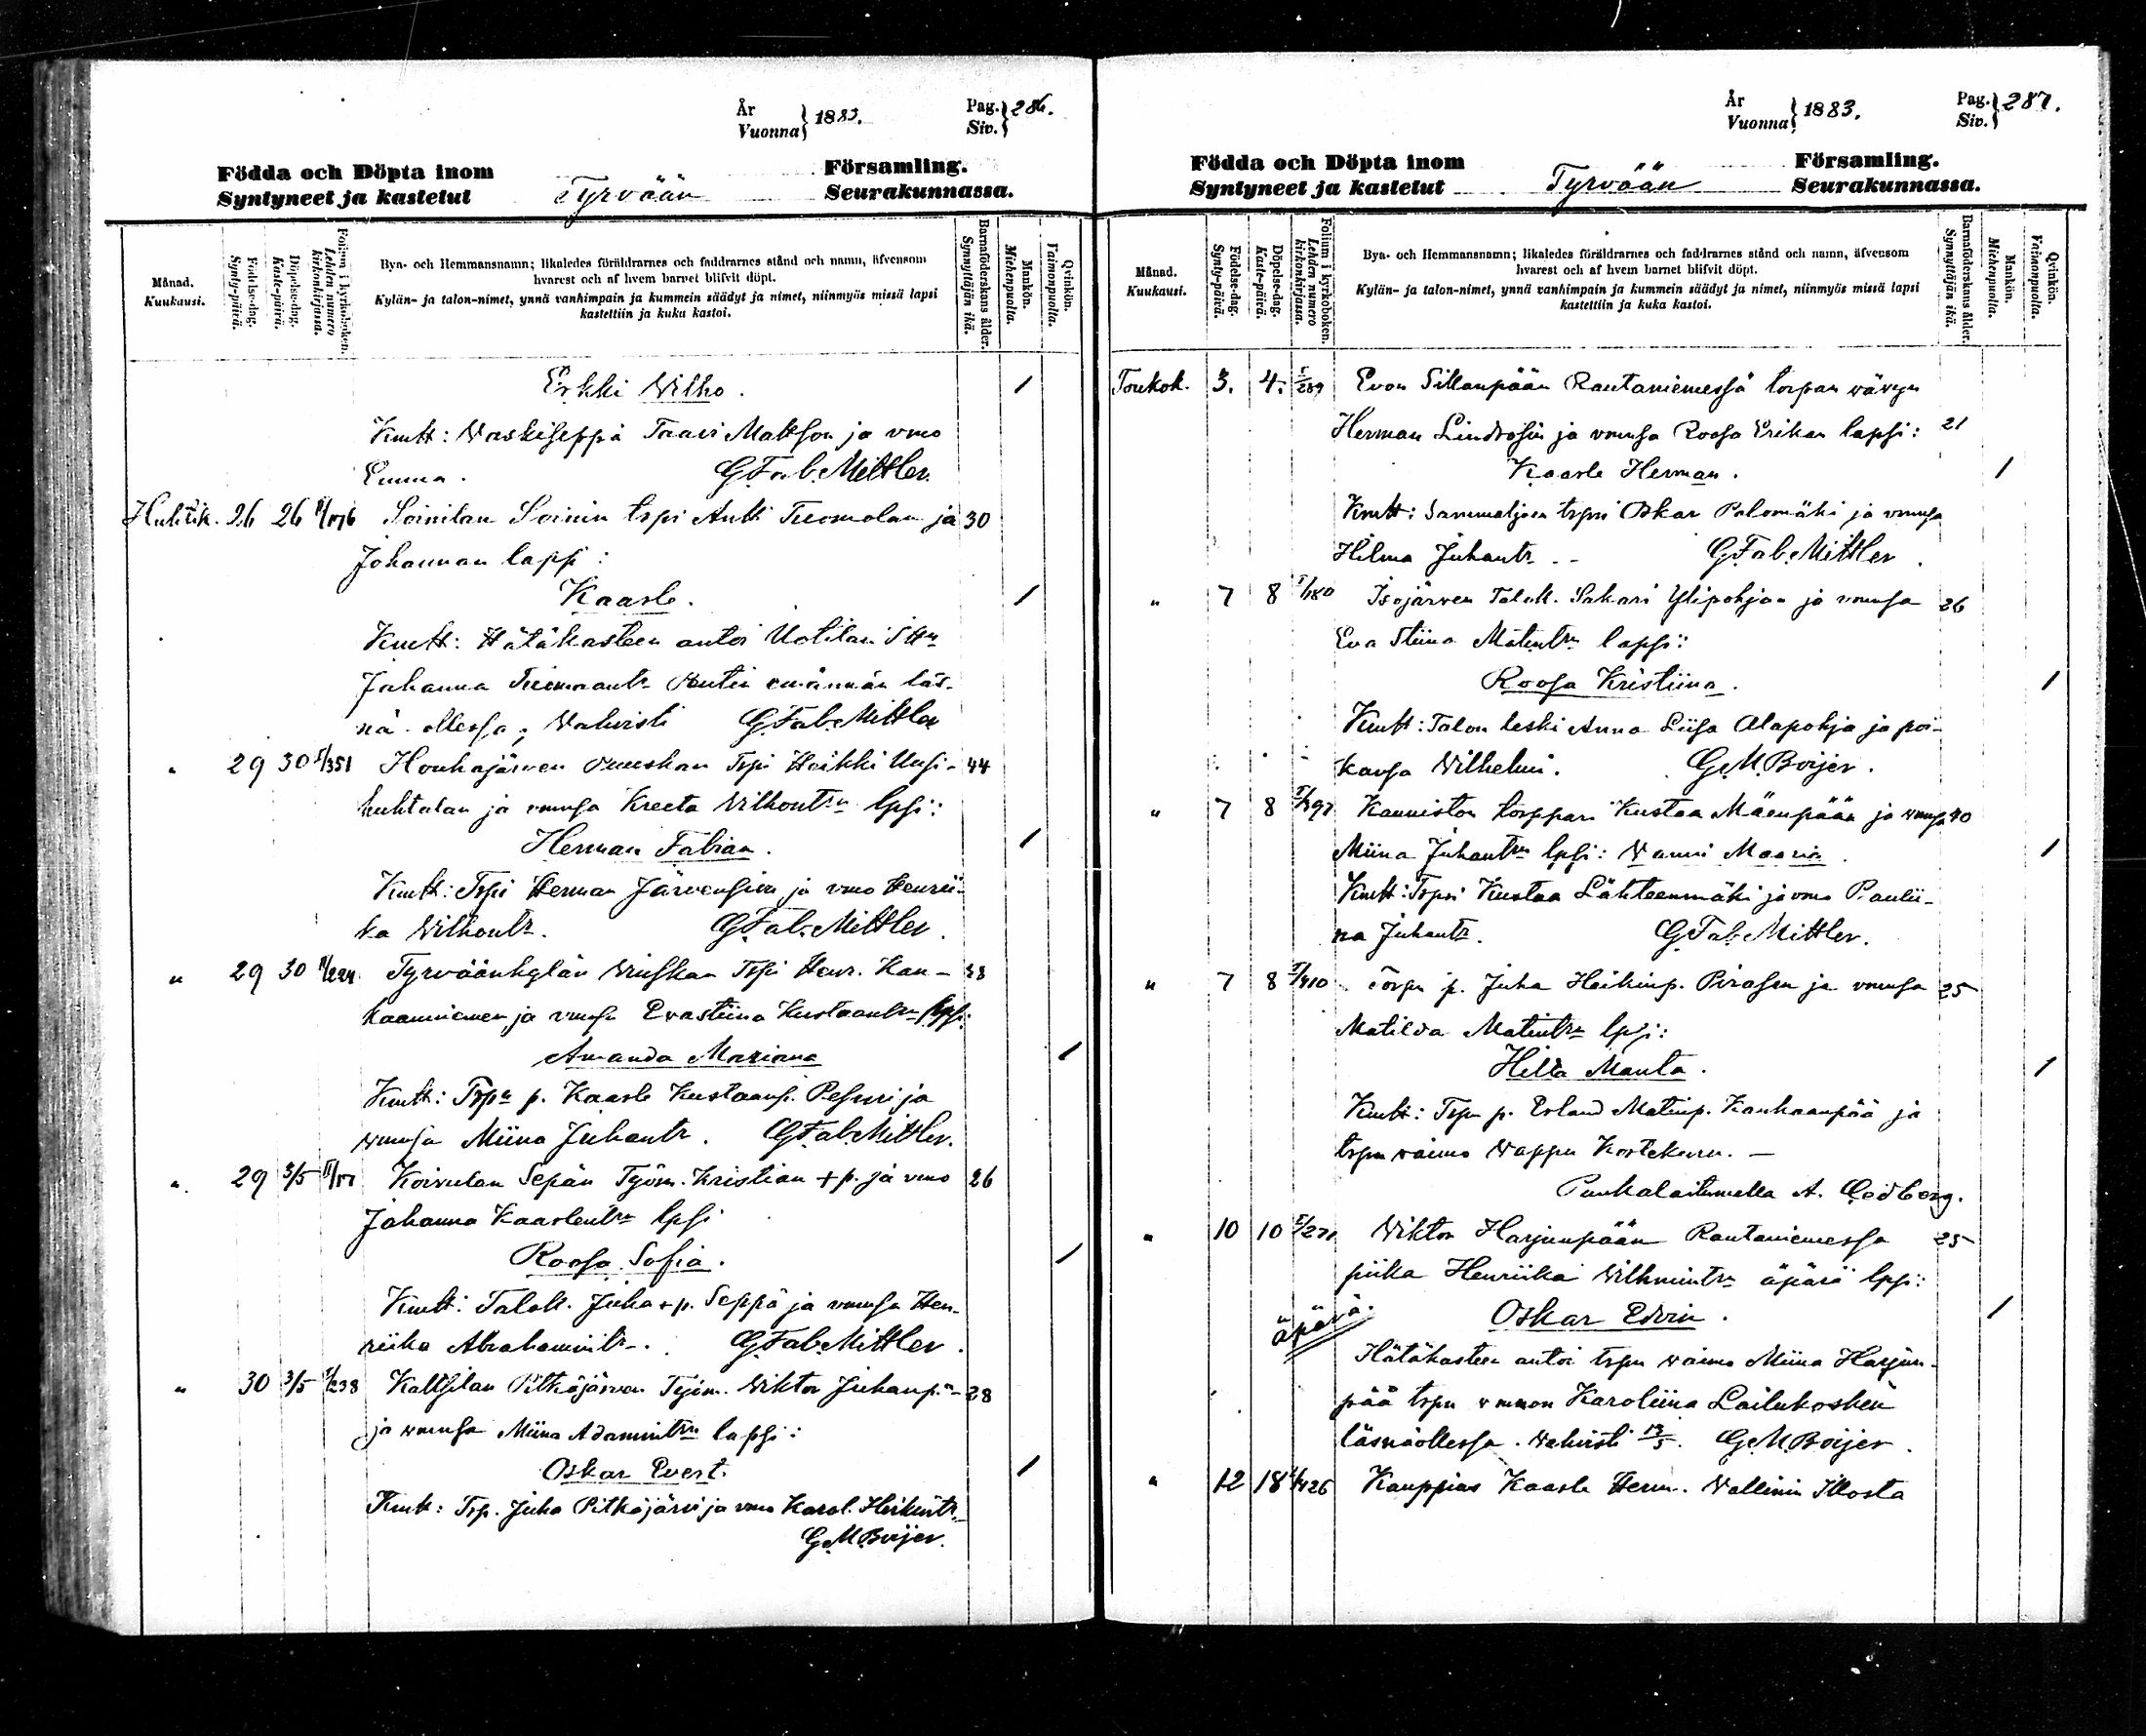 År
Vuonna } 1883. Pag.
Siv. } 286.
Födda och Döpta inom Församling.
Syntyneet ja kastetut Tyrvään Seurakunnassa.
Månad.
Kuukausi.
Födelse-dag.
Synty-päivä.
Döpelse-dag.
Kaste-päivä.
Folium i kyrkoboken.
Lehden numero
kirkonkirjassa.
Bya- och Hemmansnamn; likaledes föräldrarnes och faddrarnes stånd och namn, äfvensom
hvarest och af hvem barnet blifvit döpt.
Kylän- ja talon-nimet, ynnä vanhimpain ja kummein säädyt ja nimet, niinmyös missä lapsi
kastettiin ja kuka kastoi.
Barnaföderskans ålder.
Synnyttäjän ikä.
Mankön.
Miehenpuolta.
Qvinkön.
Vaimonpuolta.
Erkki Wilho. 1
Kmtt: Waskiseppä Taavi Mattson ja vmo
Emma. G.Fab.Mittler.
Huhtik. 26 26 Soinilan Soinin trpi Antti Tuomolan ja 30
Johannan lapsi:
Kaarle. 1
Kmtt: Hätäkasteen antoi Uotilan
Johanna emännän läs-
nä ollessa; Wahvisti G.Fab.Mittler
" 29 30 I/351 Houhajärven Trpi Heikki Uusi- 44
huhtalan ja vmnsa Kreeta Wilhontrn lpsi:
Herman Fabian. 1
Kmtt: Trpi Herman Järvensivu ja vmo Henrii-
ka Wilhontr. G.Fab.Mittler.
" 29 30 Tyrväänkylän Trpi Henr. Kan- 38
kaanniemen ja vmnsa Evastiina Kustaantrn lpsi:
Amanda Mariana 1
Kmtt: Trpn p. Kaarle Kustaanp. Pesuri ja
vmnsa Miina Juhantr. G.Fab.Mittler.
" 29 3/5 Koivulan Sepän Työm. Kristian +p. ja vmo 26
Johanna Kaarlentrn lpsi
Roosa Sofia. 1
Kmtt: Talok. Juha +p. Seppä ja vmnsa Hen-
riika Abrahamintr. G.Fab.Mittler.
" 30 3/5 I/238 Kaltsilan Pitkäjärven Työm. Wiktor Juhanp. 28
ja vmnsa Miina Adamintrn lapsi:
Oskar Evert. 1
Kmtt: Trp. Juha Pitkäjärvi ja vmo Karol. Heikintr.
G.M.Boijer.
År
Vuonna } 1883. Pag.
Siv. } 287.
Födda och Döpta inom Församling.
Syntyneet ja kastetut Tyrvään Seurakunnassa.
Månad.
Kuukausi.
Födelse-dag.
Synty-päivä.
Döpelse-dag.
Kaste-päivä.
Folium i kyrkoboken.
Lehden numero
kirkonkirjassa.
Bya- och Hemmansnamn; likaledes föräldrarnes och faddrarnes stånd och namn, äfvensom
hvarest och af hvem barnet blifvit döpt.
Kylän- ja talon-nimet, ynnä vanhimpain ja kummein säädyt ja nimet, niinmyös missä lapsi
kastettiin ja kuka kastoi.
Barnaföderskans ålder.
Synnyttäjän ikä.
Mankön.
Miehenpuolta.
Qvinkön.
Vaimonpuolta.
Toukok. 3. 4. I/289 Evon Sillanpään Rautaniemessä torpan vävyn
Herman Lindrosin ja vmnsa Roosa Erikan lapsi: 21
Kaarle Herman. 1
Kmtt: Sammaljoen trpri Oskar Palomäki ja vmnsa
Hilma Juhantr. G.Fab.Mittler.
" 7 8 I/180 Isojärven Talok. Sakari Ylipohjan ja vmnsa 26
Eva Stiina Matintrn lapsi:
Roosa Kristiina. 1
Kmtt: Talon leski Anna Liisa Alapohja ja poi-
kansa Wilhelmi. G.M.Boijer.
" 7 8 Kanniston torppari Kustaa Mäenpään ja vmnsa 40
Miina Juhantrn lpsi: Wanni Maaria. 1
Kmtt: Trpri Kustaa Lähteenmäki ja vmo Paulii-
na Juhantr. G.Fab.Mittler.
" 7 8 Torpn p. Juha Heikinp. Pirasen ja vmnsa 25
Matilda Matintrn lpsi:
Hilda Manta. 1
Kmtt: Trpn p. Erland Matinp. Kanhaanpää ja
trpn vaimo Wappu Kortekuru. —
Punkalaitumella A. Cedberg.
" 10 10 Wiktor Harjunpään Rautaniemessa 25
piika Henriika Wilhmintrn äpärä lpsi:
äpärä. Oskar Edvin. 1
Hätäkasteen antoi trpn vaimo Miina Harjun-
pää trpn vmmon Karoliina Lailukosken
läsnäollessa. Wahvisti 13/5. G.M.Boijer.
" 12 18 Kauppias Kaarle Herm. Wallinin Illosta